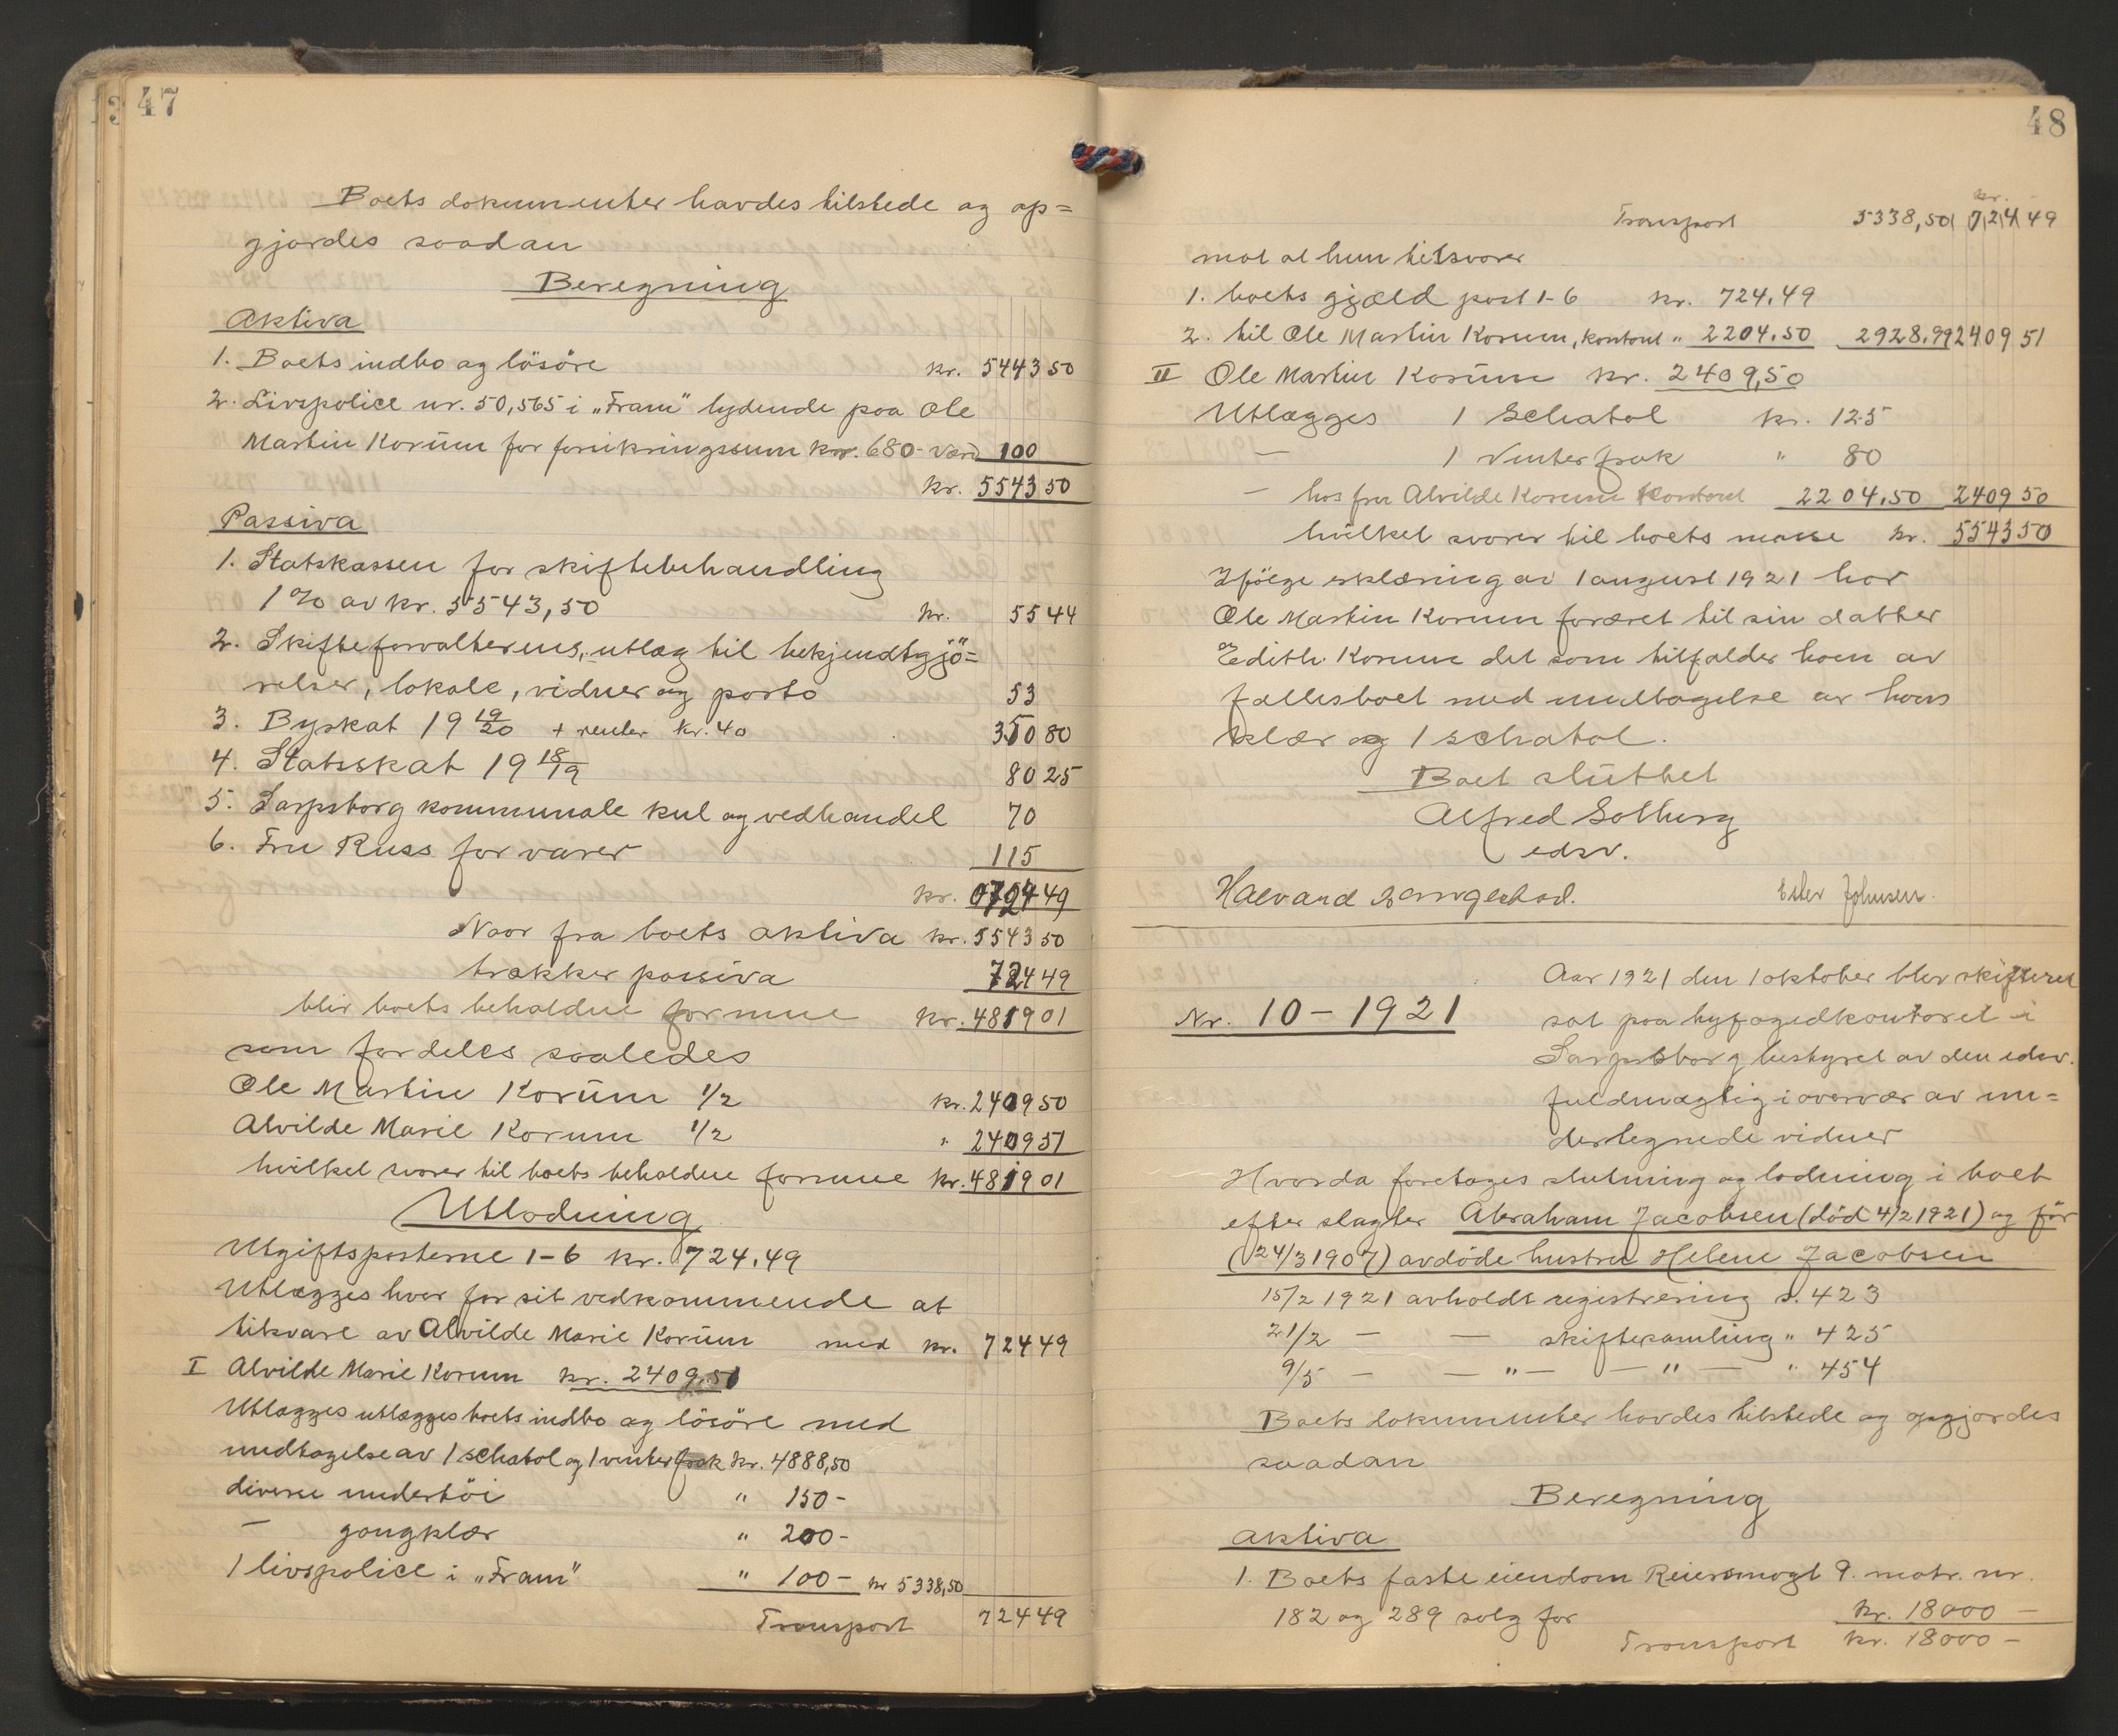 47
Boets dokumenter havdes tilstede og op=
gjordes saadan
Beregning
Aktiva
1. Boets indbo og løsöre kr. 5443 50
2. Livspolice nr. 50,565 i „Fram" lydende paa Ole
Martin Korŭm for forsikringssum kr. 680- værd 100
kr. 5543 50
Passiva
1. Statskassen for skiftebehandling
1 % av kr. 5543,50 kr. 55 44
2. Skifteforvalterens, utlæg til bekjendtgjö=
relser, lokale, vidner og porto 53
3. Byskat 19 19/20 + renter kr. 40 350 80
4. Statsskat 19 18/19 80 25
5. Sarpsborg kommunale kul og vedhandel 70
6. Fru Russ for varer 115
kr. 724 49
Naar fra boets aktiva kr. 5543 50
trækker passiva 724 49
blir boets beholdne formue kr. 4819 01
som fordeles saaledes
Ole Martin Korŭm 1/2 kr. 2409 50
Alvilde Marie Korum 1/2 " 2409 51
hvilket svarer til boets beholdne formue kr. 4819 01
Utlodning
Utgiftsposterne 1-6 kr. 724.49
Utlægges hver for sit vedkommende at
tilsvare av Alvilde Marie Korŭm med kr. 724 49
I Alvilde Marie Korum kr. 2409.51
Utlægges utlægges boets indbo og løsöre med
undtagelse av 1 schatol og 1 vinterfrak kr. 4888,50
diverse undertöi " 150-
— gangklær " 200-
1 livspolice i „Fram" " 100- kr 5338,50
Transport 724 49
48
kr.
Transport 5338,50 724 49
mot at hun tilsvarer
1. boets gjæld post 1-6 kr. 724.49
2. til Ole Martin Korum, kontant " 2204.50 2928.99 2409 51
II Ole Martin Korŭm kr. 2409,50
Utlægges 1 Schatol kr. 125
— 1 Vinterfrak " 80
— hos fru Alvilde Korum kontant 2204.50 2409 50
hvilket svarer til boets masse kr. 5543 50
Ifölge erklæring av 1 august 1921 har
Ole Martin Korum foræret til sin datter
Edith Korum det som tilfalder ham av
fællesboet med undtagelse av hans
klær og 1 schatol.
Boet sluttet
Alfred Solberg
edsv.
Halvard Ester Johnsen.
Nr. 10 - 1921
Aar 1921 den 1 oktober blev skifteret
sat paa byfogedkontoret i
Sarpsborg bestyret av den edsv.
fuldmægtig i overvær av un=
dertegnede vidner
Hvorda foretages slutning og lodning i boet
efter slagter Abraham Jacobsen (död 4/2 1921) og för
(24/3 1907) avdöde hustru Helene Jacobsen
15/2 1921 avholdt registrering s. 423
21/2 — — skiftesamling " 425
9/5 — — " — — " — " 454
Boets dokumenter havdes tilstede og opgjordes
saadan
Beregning
Aktiva
1. Boets faste eiendom Reiersmogt 9. matr. nr.
182 og 289 solg for kr. 18000 —
Transport kr. 18000 —